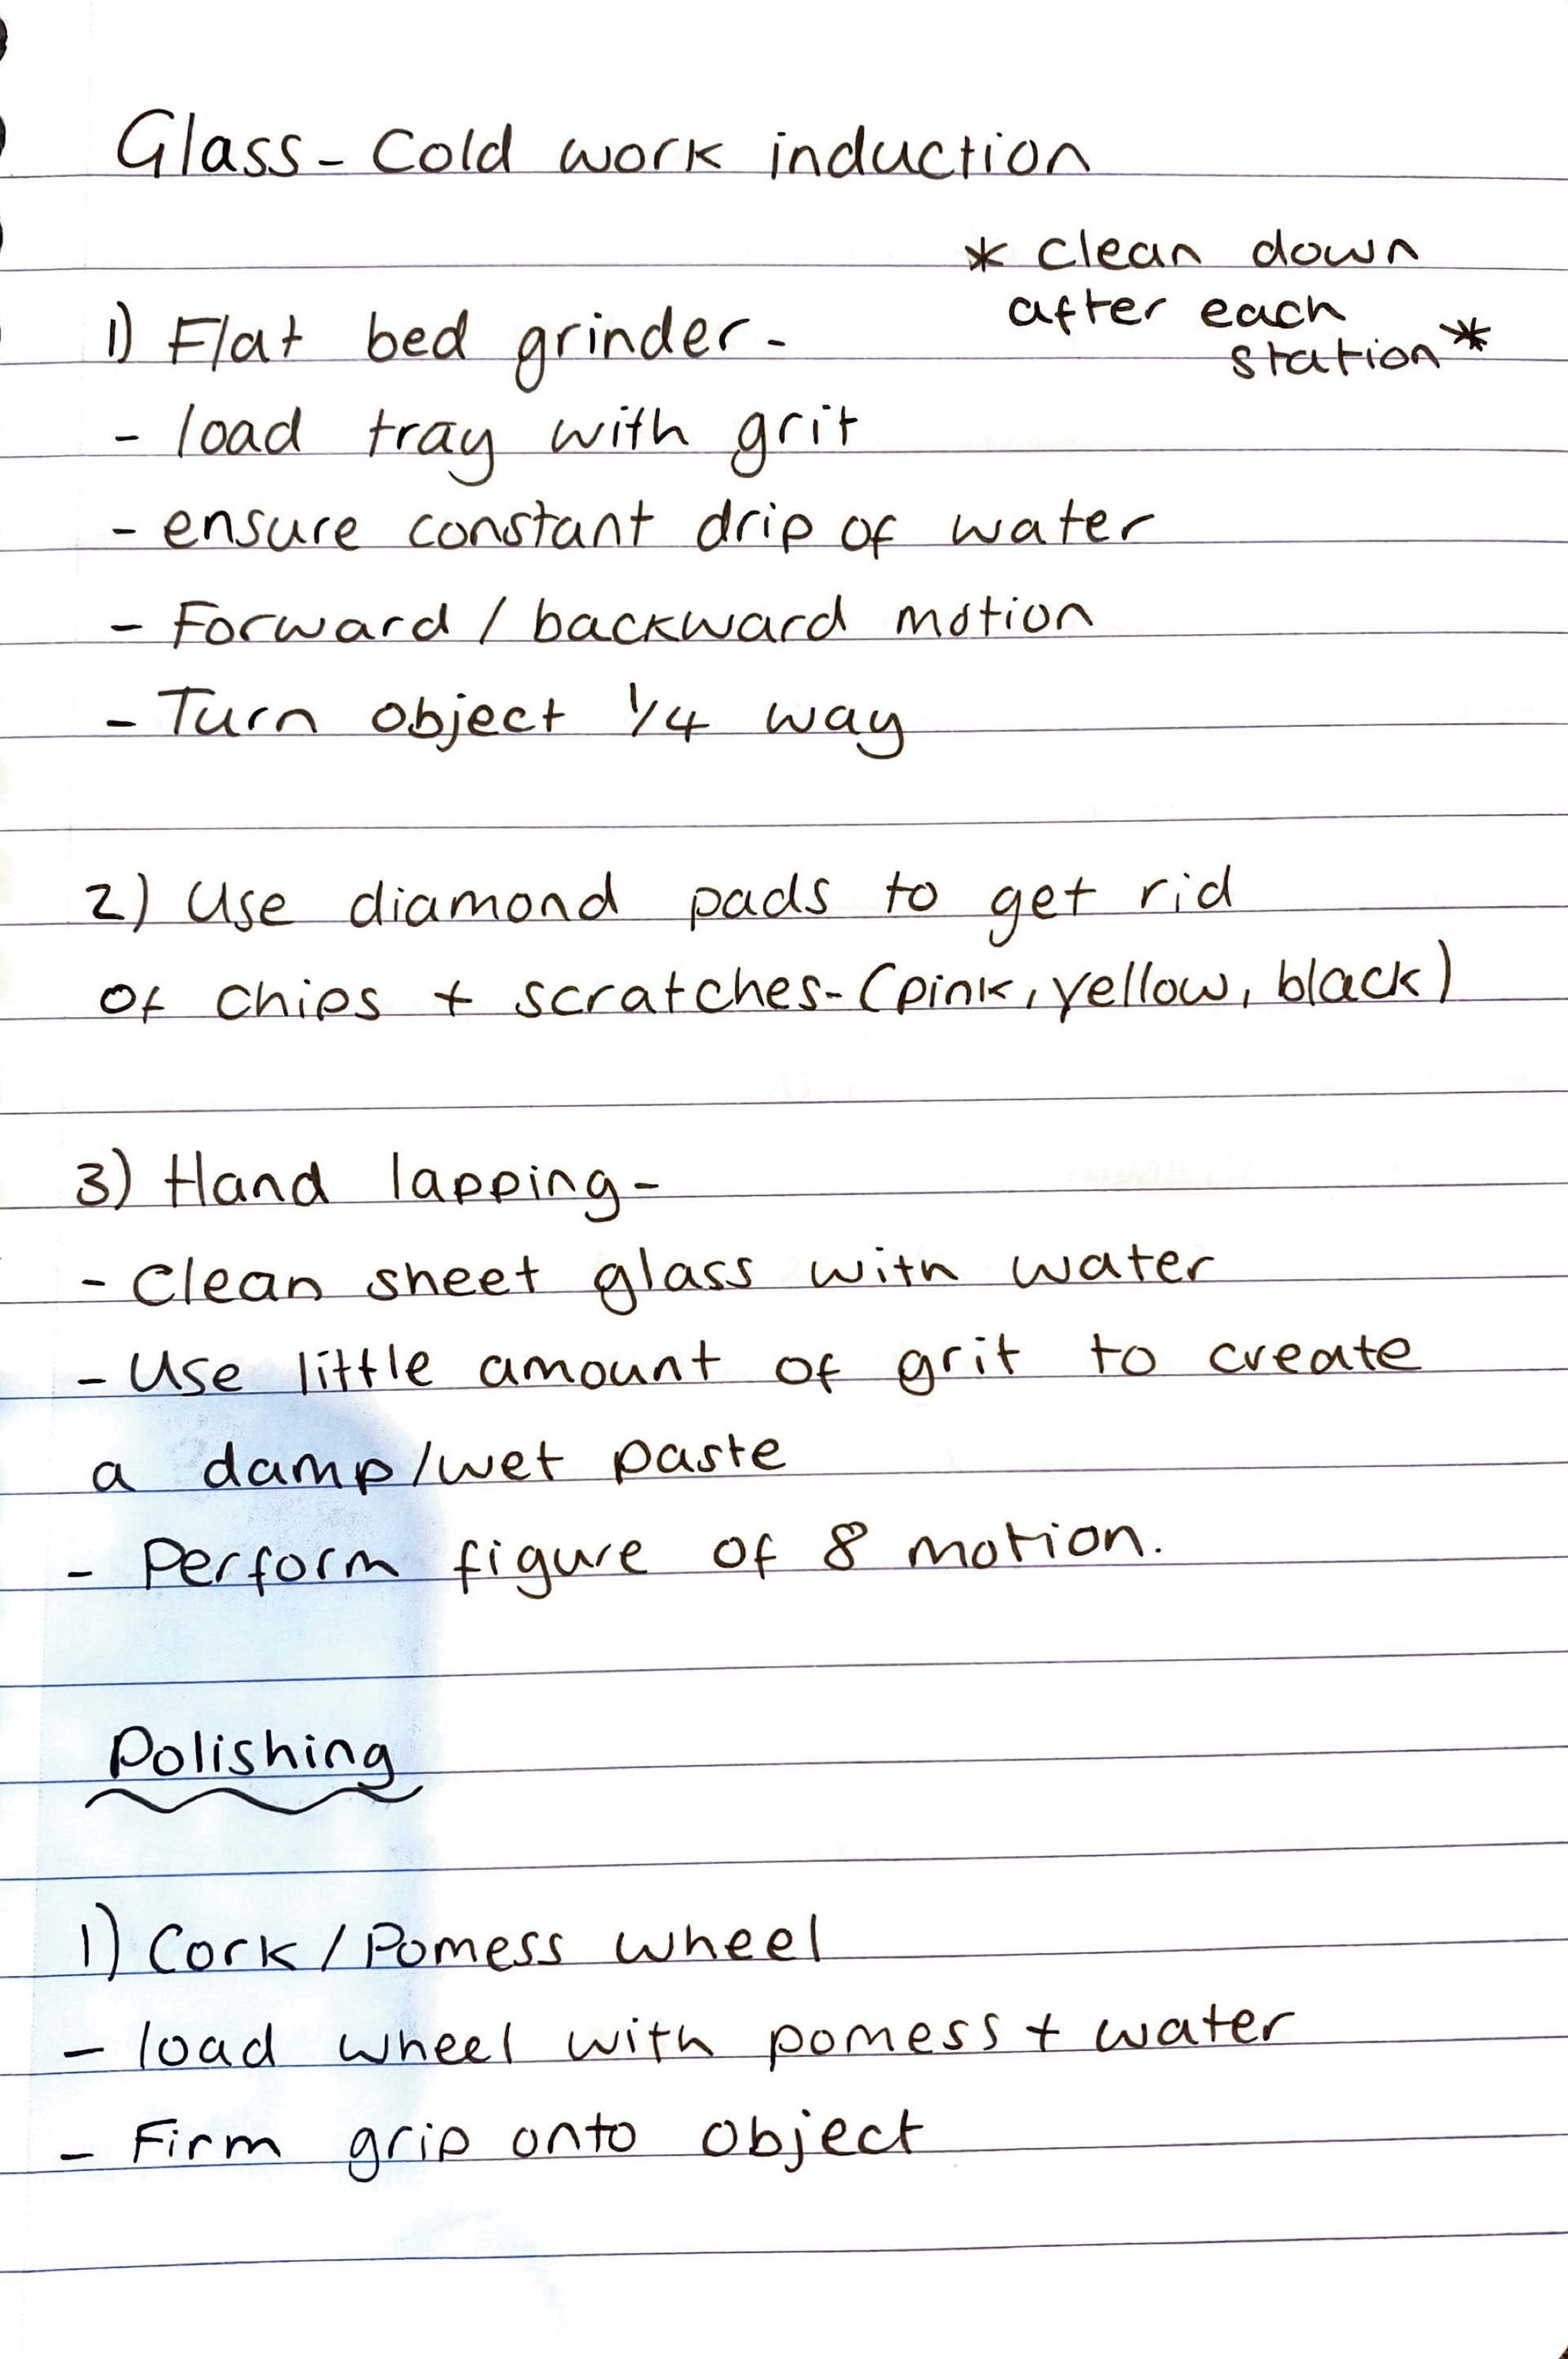 Glass - Cold work induction
* clean down
after each
station *
1) Flat bed grinder -
- load tray with grit
- ensure constant drip of water
- Forward / backward motion
- Turn object 1/4 way
2) Use diamond pads to get rid
of chips + scratches - (pink, yellow, black)
3) Hand lapping -
- Clean sheet glass with water
- Use little amount of grit to create
a damp/wet paste
- Perform figure of 8 motion.
Polishing
1) Cork / Pomess wheel
- load wheel with pomess + water
- Firm grip onto object